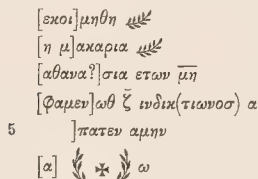 [εκοι]μηθη
[η μ]ακαρια
[αθανα?]σια ετων μ̅η̅
[Φαμεν]ωθ ζ̄ ινδικ(τιωνοσ) α
5 ]πατεν αμην
[α] ✠ ω